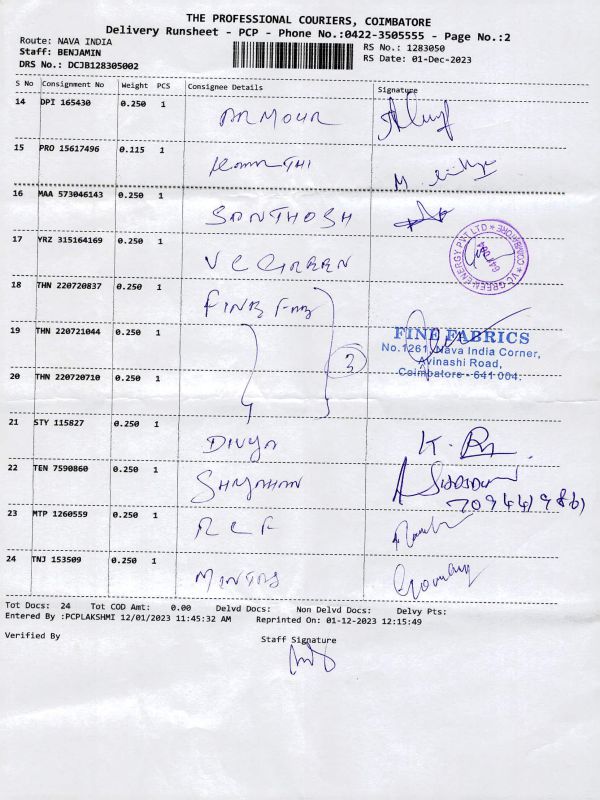 THE PROFESSIONAL COURIERS, COIMBATORE
Delivery Runsheet - PCP - Phone No.:0422-3505555 - Page No.:2
Route: NAVA INDIA
RS No.: 1283050
Staff: BENJAMIN
RS Date: 01-Dec-2023
DRS No.: DCJB128305002
S No Consignment No Weight PCS Consignee Details Signature
14 DPI 165430 0.250 1 ARMOUR
15 PRO 15617496 0.115 1
16 MAA 573046143 0.250 1 SANTHOSH
17 YRZ 315164169 0.250 1 VC GREEN
VC GREEN ENERGY PVT LTD * COIMBATORE *
18 THN 220720837 0.250 1 FINE FAB
19 THN 220721044 0.250 1
3
FINE FABRICS
No.1261, Nava India Corner,
Avinashi Road,
Coimbatore - 641 004.
20 THN 220720710 0.250 1
21 STY 115827 0.250 1 DIVYA
22 TEN 7590860 0.250 1
23 MTP 1260559 0.250 1
24 TNJ 153509 0.250 1
Tot Docs: 24 Tot COD Amt: 0.00 Delvd Docs: Non Delvd Docs: Delvy Pts:
Entered By :PCPLAKSHMI 12/01/2023 11:45:32 AM Reprinted On: 01-12-2023 12:15:49
Verified By Staff Signature